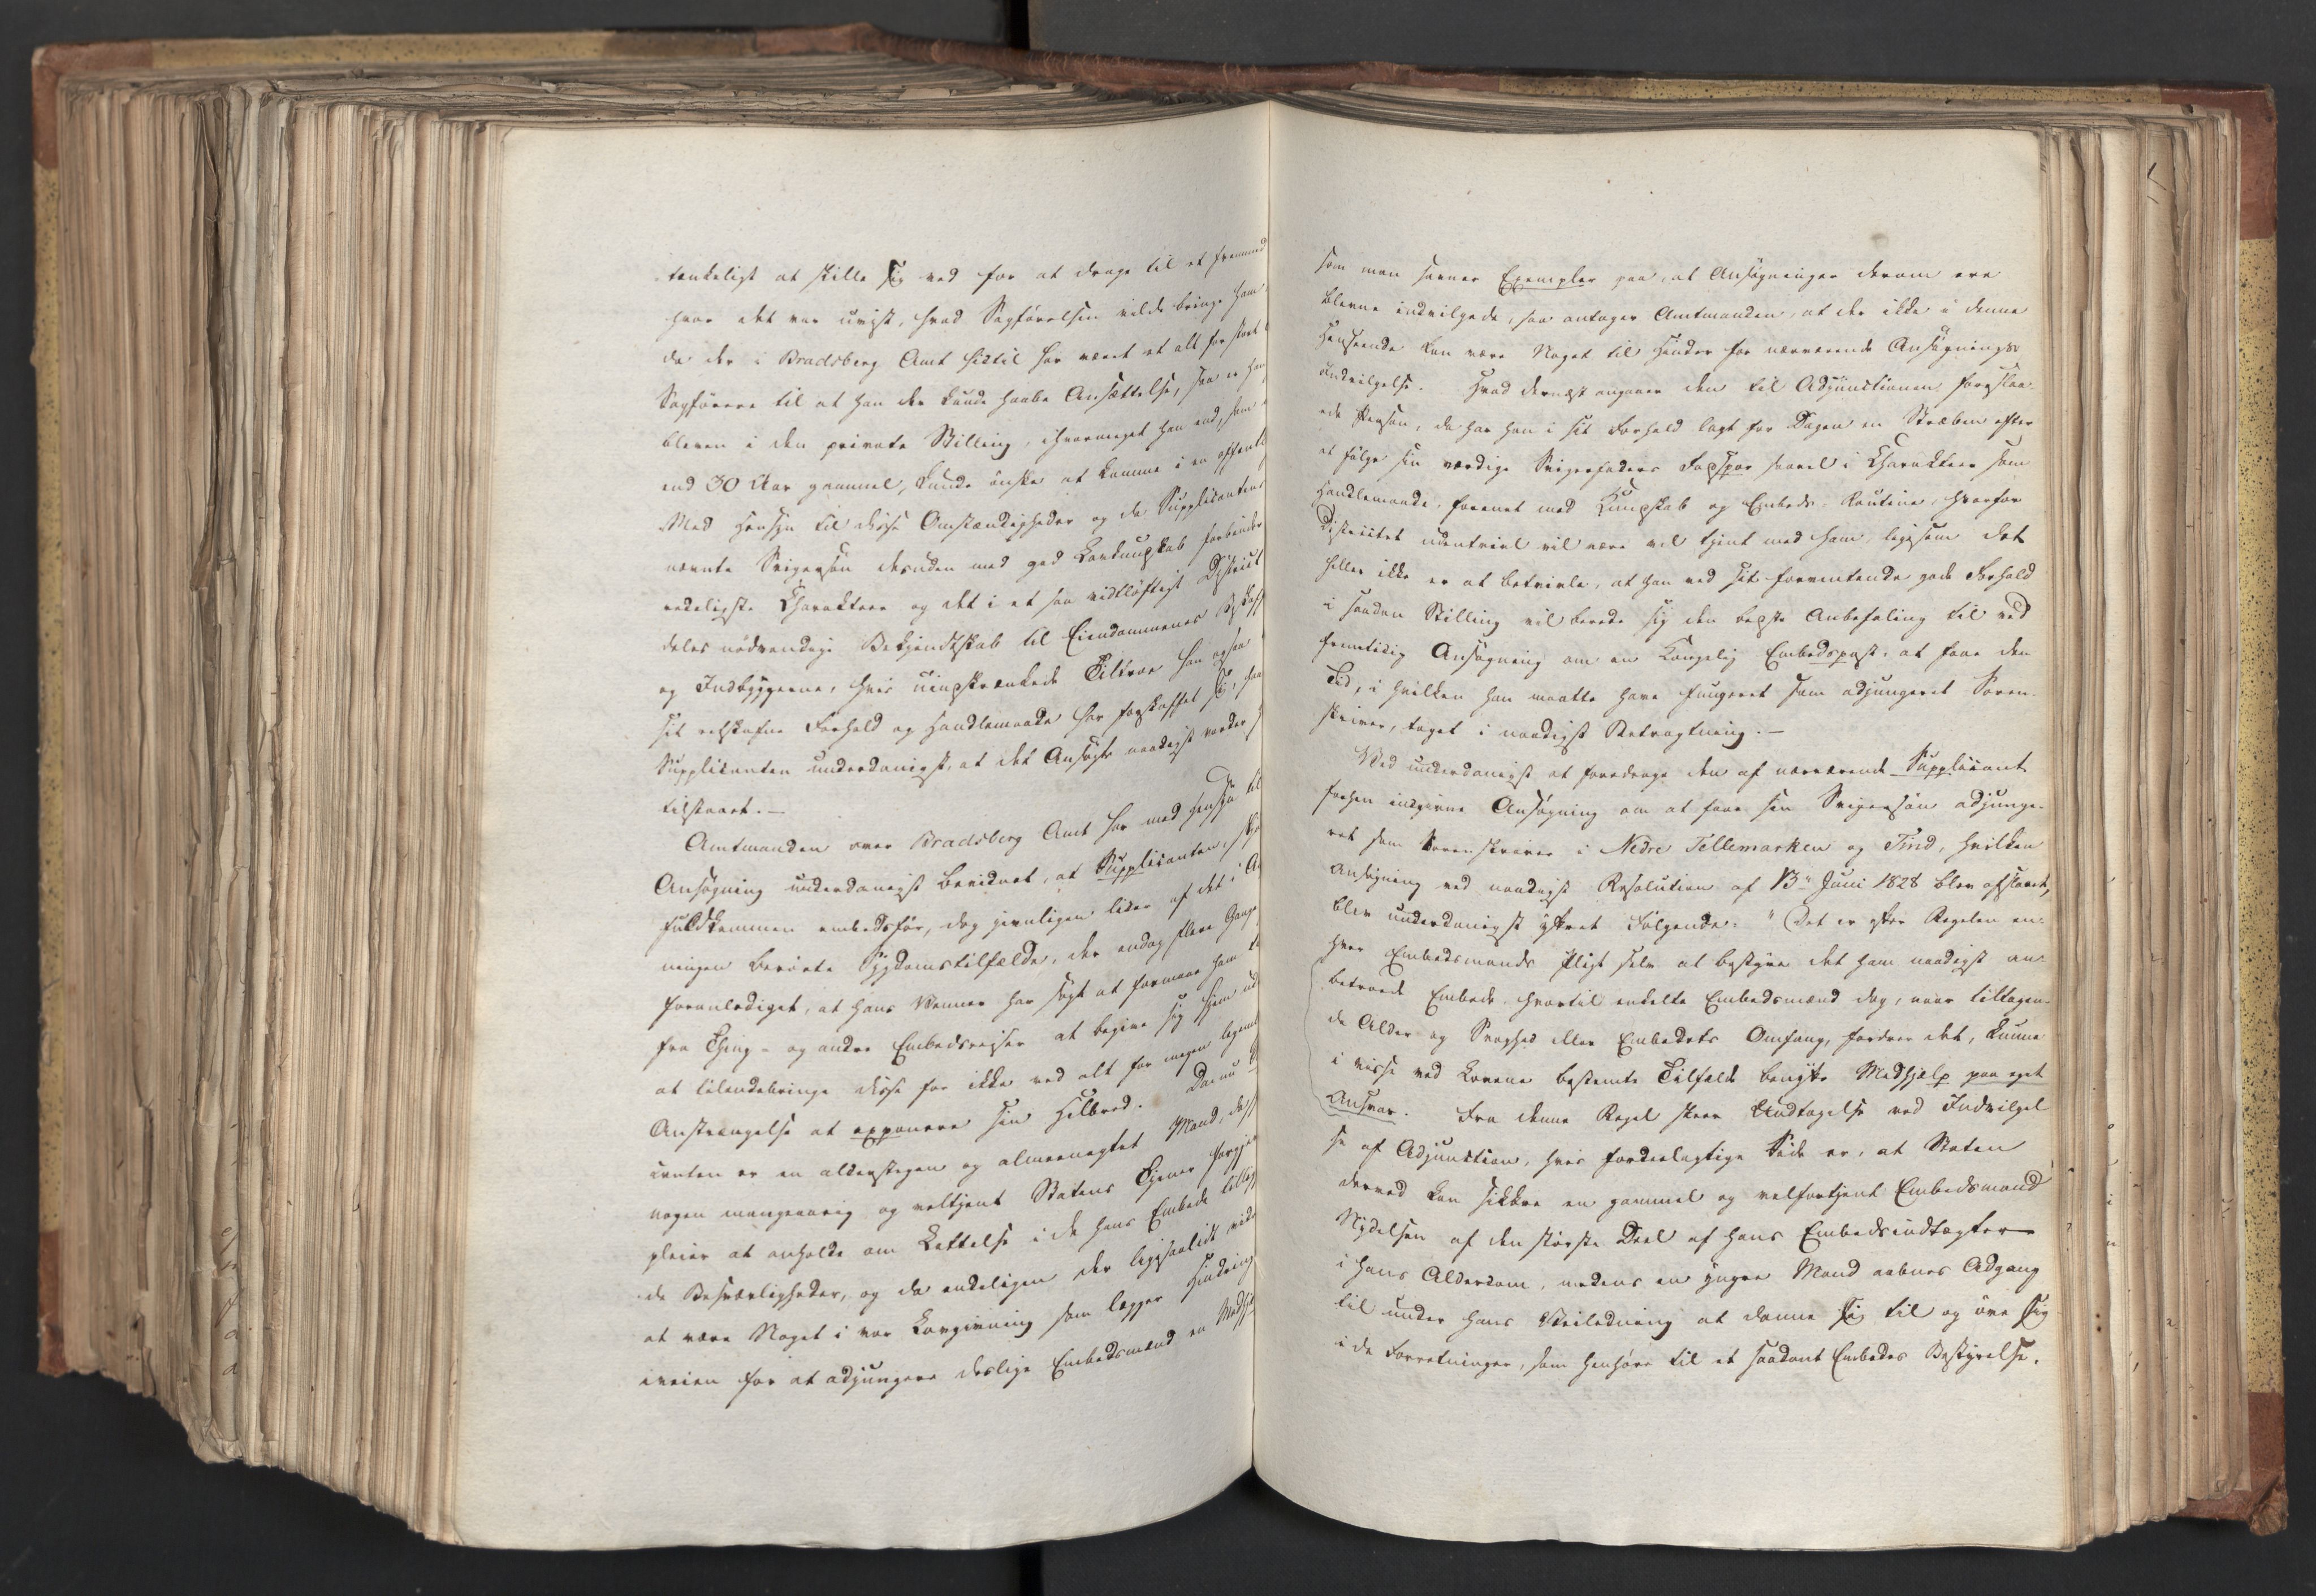 tænkeligt at skille sig ved for at drage til et fremmed
hvor det var uvist, hvad Sagførelsen vilde bringe ham
da der i Bradsberg Amt hidtil har været et alt for stort
Sagførere til at han der kunde haabe Ansættelse, saa er han
bleven i den private Stilling, ihvormeget han end, som
end 30 Aar gammel, kunde ønske at komme i en offentl
Med Hensyn til disse Omstændigheder og da Supplicantens
nævnte Svigersøn desuden med god Lovkundskab forbinder
redeligste Charakteer og det i et saa vidtløftigt District
deles nødvendige Bekjendtskab til Eiendommenes Beskaff
og Indbyggerne, hvis uindskrænkede Tiltroe han ogsaa
sit retskafne Forhold og Handlemaade har forskaffet sig, haa
Supplicanten underdanigst, at det Ansøgte naadigst vorder
tilstaaet.—
Amtmanden over Bradsberg Amt har med Hensyn til
Ansøgning underdanigst bevidnet, at Supplicanten, skjø
fuldkommen embedsfør, dog jevnligen lider af det i An
ningen berørte Sygdomstilfælde, der endog flere Gange
foranlediget, at hans Venner har søgt at formaae ham
fra Thing- og andre Embedsreiser at begive sig hjem ud
at tilendebringe disse for ikke ved alt for megen legeml
Anstrængelse at exponere sin Helbred. Da nu
canten er en alderstegen og almeenagtet Mand, da
nogen mangeaarig og veltjent Statens Tjener forgje
pleier at anholde om Lettelse i de hans Embede tillig
de Besværligheder, og da endeligen der ligesaalidt vide
at være Noget i vor Lovgivning som lægger Hindring
iveien for at adjungere deslige Embedsmænd en Medhj
som man savner Exempler paa, at Ansøgninger derom ere
blevne indvilgede, saa antager Amtmanden, at der ikke i denne
Henseende kan være Noget til Hinder for nærværende Ansøgnings
Indvilgelse. Hvad dernæst angaaer den til Adjunctionen foreslaa-
ede Person, da har han i sit Forhold lagt for Dagen en Stræben efter
at følge sin værdige Svigerfaders Fodspor saavel i Charakteer som
Handlemaade, forenet med Kundskab og Embeds-Routine, hvorfor
Districtet udentvivl vil være vel tjent med ham, ligesom det
heller ikke er at betvivle, at han ved sit forventende gode Forhold
i saadan Stilling vil berede sig den bedste Anbefaling til ved
fremtidig Ansøgning om en Kongelig Embedspost, at faae den
Tid, i hvilken han maatte have fungeret som adjungeret Soren-
skriver, taget i naadigst Betragtning.—
Ved underdanigst at foredrage den af nærværende Supplicant
forhen indgivne Ansøgning om at faae sin Svigersøn adjunge-
ret som Sorenskriver i Nedre Tellemarken og Tind, hvilken
Ansøgning ved naadigst Resolution af 13de Juni 1828 blev afslaaet,
blev underdanigst yttret Følgende: "Det er efter Regelen en-
hver Embedsmands Pligt selv at bestyre det ham naadigst an-
betroede Embede, hvortil enkelte Embedsmænd dog, naar tiltagen-
de Alder og Svaghed eller Embedets Omfang, fordrer det, kunne
i visse ved Lovene bestemte Tilfælde benytte Medhjælp paa eget
Ansvar. Fra denne Regel skeer Undtagelse ved Indvilgel-
se af Adjunction, hvis fordeelagtige Side er, at Staten
derved kan sikkre en gammel og velfortjent Embedsmand
Nydelsen af den største Deel af hans Embedsindtægter
i hans Alderdom, medens en yngre Mand aabnes Adgang
til under hans Veiledning at danne sig til og øve sig
i de Forretninger, som henhøre til et saadant Embedes Bestyrelse.